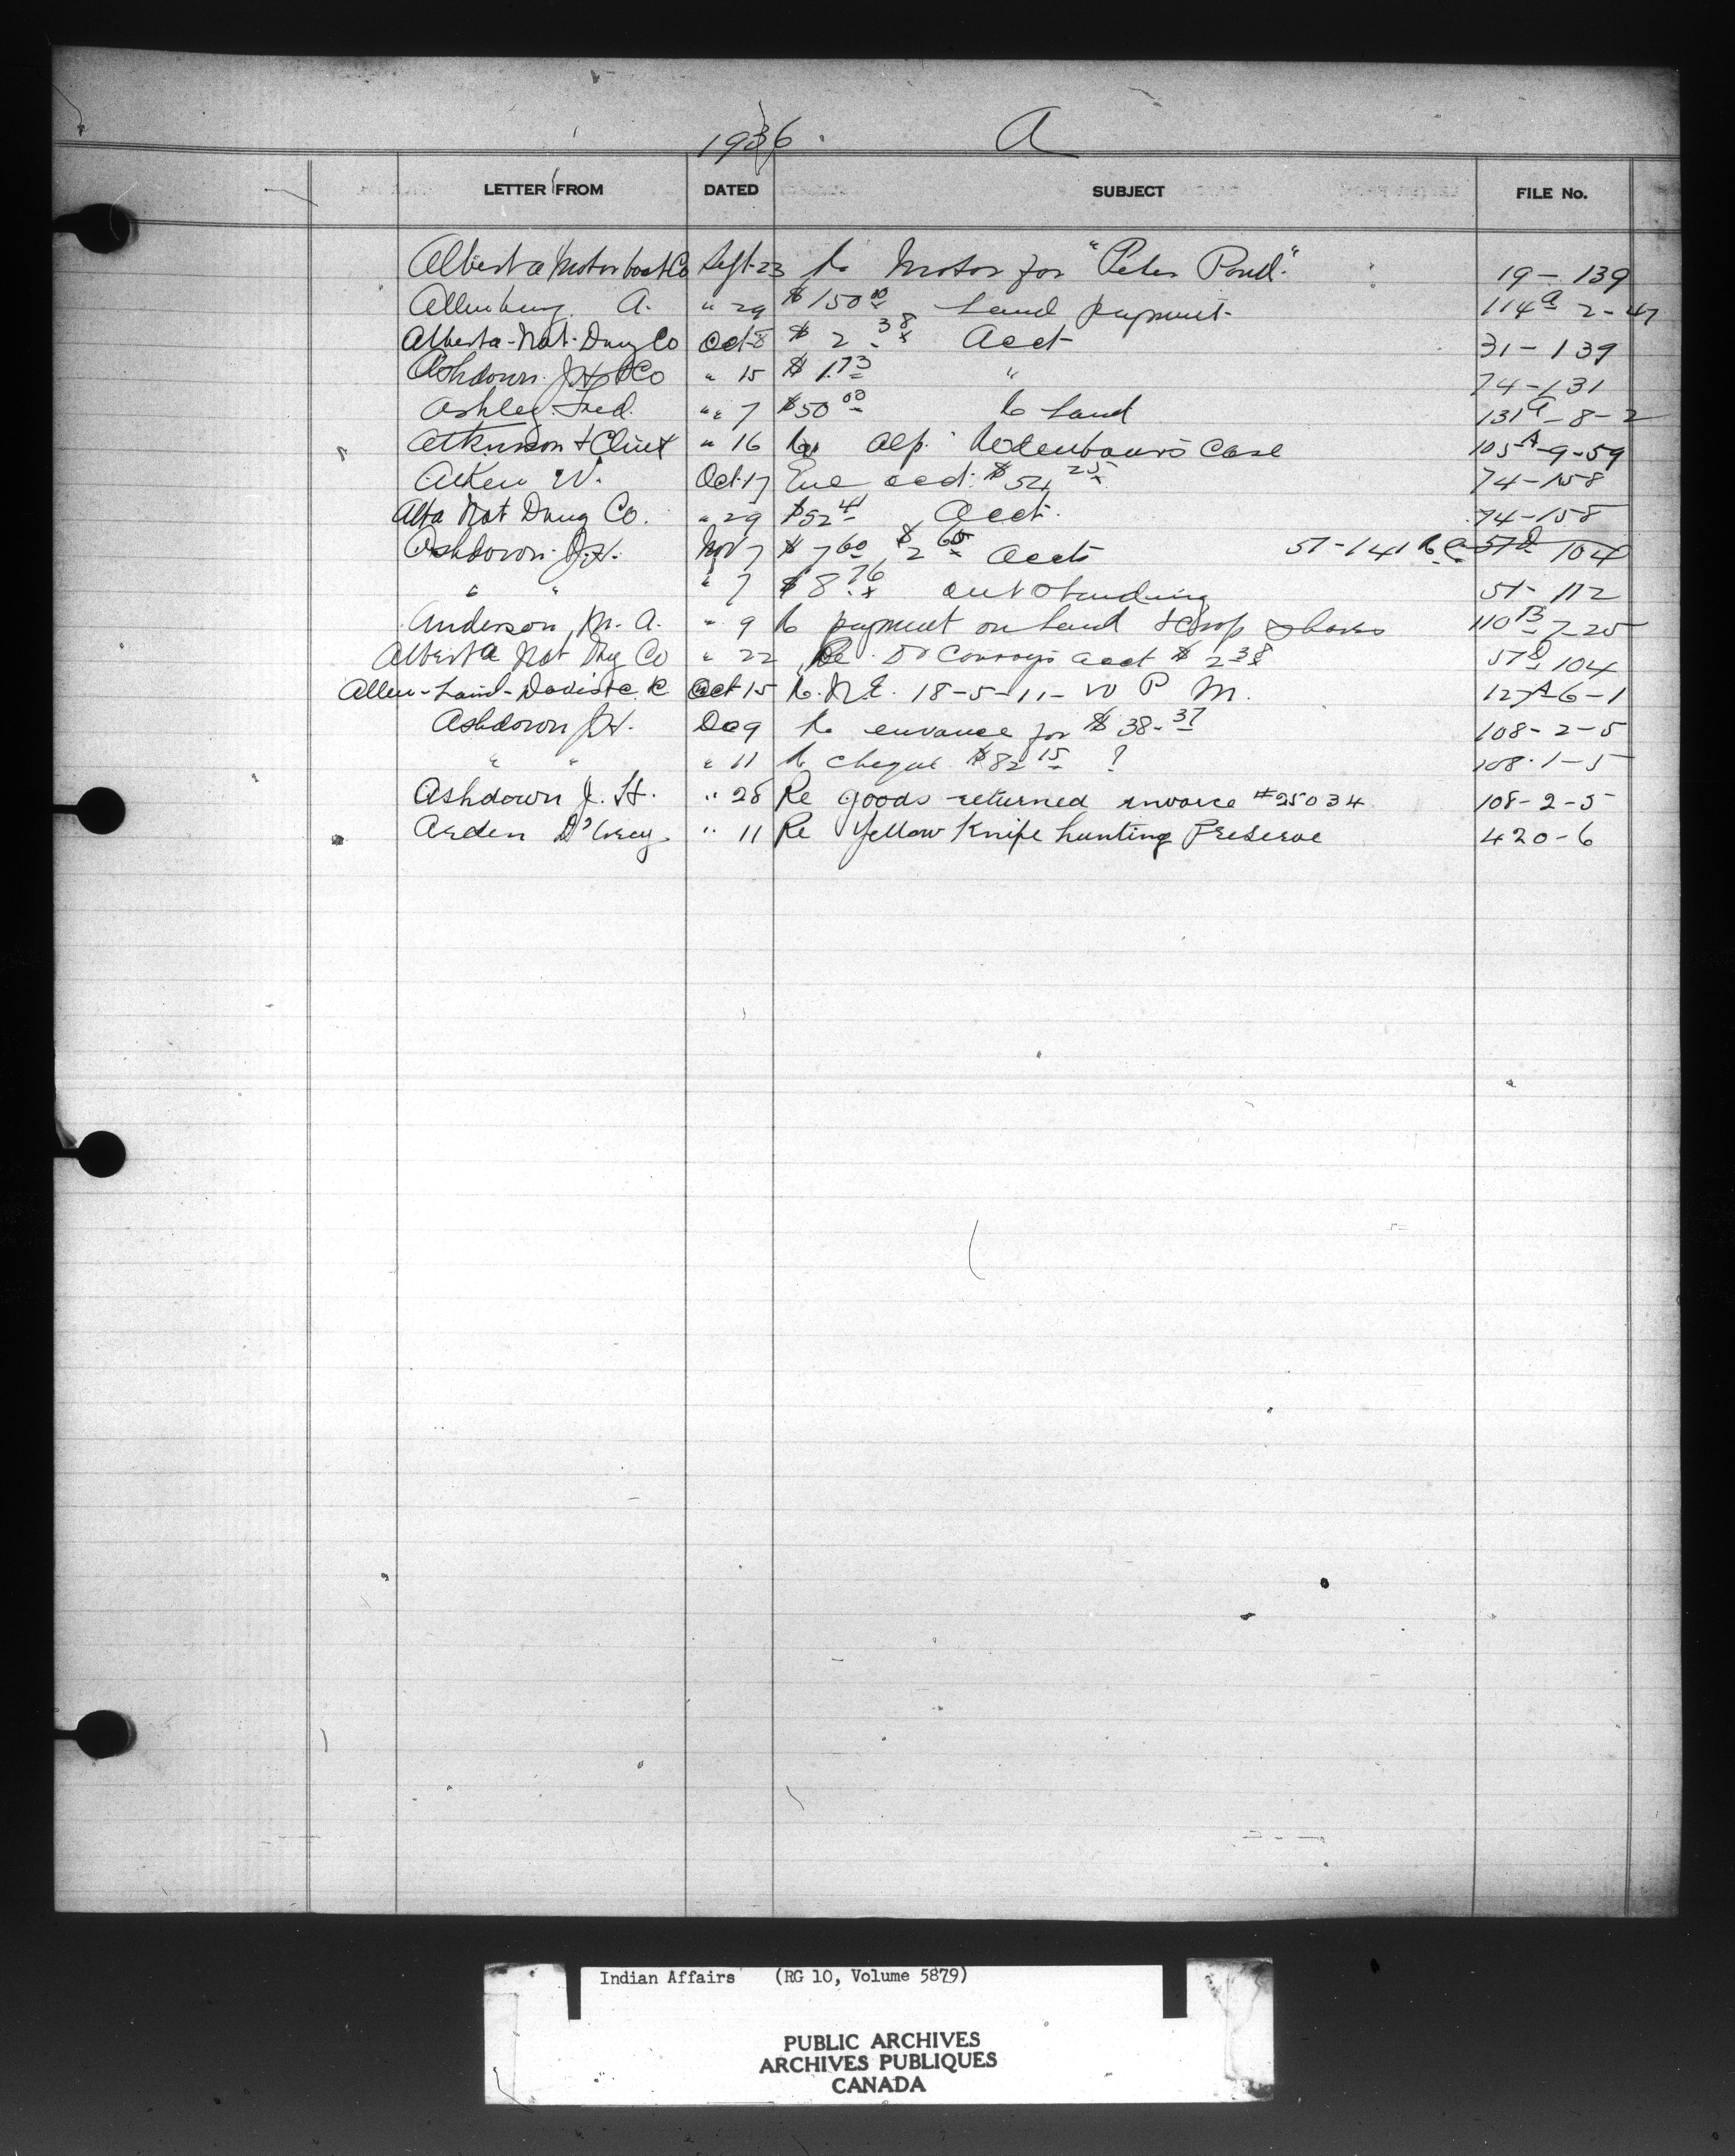 1936. A
LETTER FROM DATED SUBJECT FILE No.
Alberta Motor boat Co Sept-23 Re Motor for "Peter Pond." 19-139
Allenburg A. " 29 $150 00 Land payment- 114 a 2-47
Alberta-Nat-Drug Co Oct-8 $ 2.38 Acct 31-139
Ashdown J.H. & Co " 15 $ 1.73 " 74-131
Ashley Fred. " 7 $50 00 Re Land 131 a -8-2
Atkinson & " 16 Re Case 105 A -9-59
Aitken W. Oct-17 acct. $54 25 74-158
Alta Nat Drug Co. " 29 $52 41 Acct. 74-158
Ashdown J.H. Nov 7 $ 7 60 $ 2 65 Accts 51-141 57 D 104
" " " 7 $ 8.76 outstanding 51-112
Anderson, M. A. " 9 Re payment on Land & Crop shares 110 B -7-25
Alberta Nat Drug Co " 22 Re Dr Conroy's acct $ 2 38 57 D 104
Allen-Laird-Davis Oct-15 Re. N.E. 18-5-11-W P M. 127 A -6-1
Ashdown J.H. Dec 9 Re for $ 38-37 108-2-5
" " " 11 Re cheque $82 15 ? 108-1-5
Ashdown J. H. " 28 Re goods returned invoice #25034 108-2-5
Arden D'Arcy " 11 Re Yellow Knife hunting Preserve 420-6
Indian Affairs (RG 10, Volume 5879)
PUBLIC ARCHIVES
ARCHIVES PUBLIQUES
CANADA